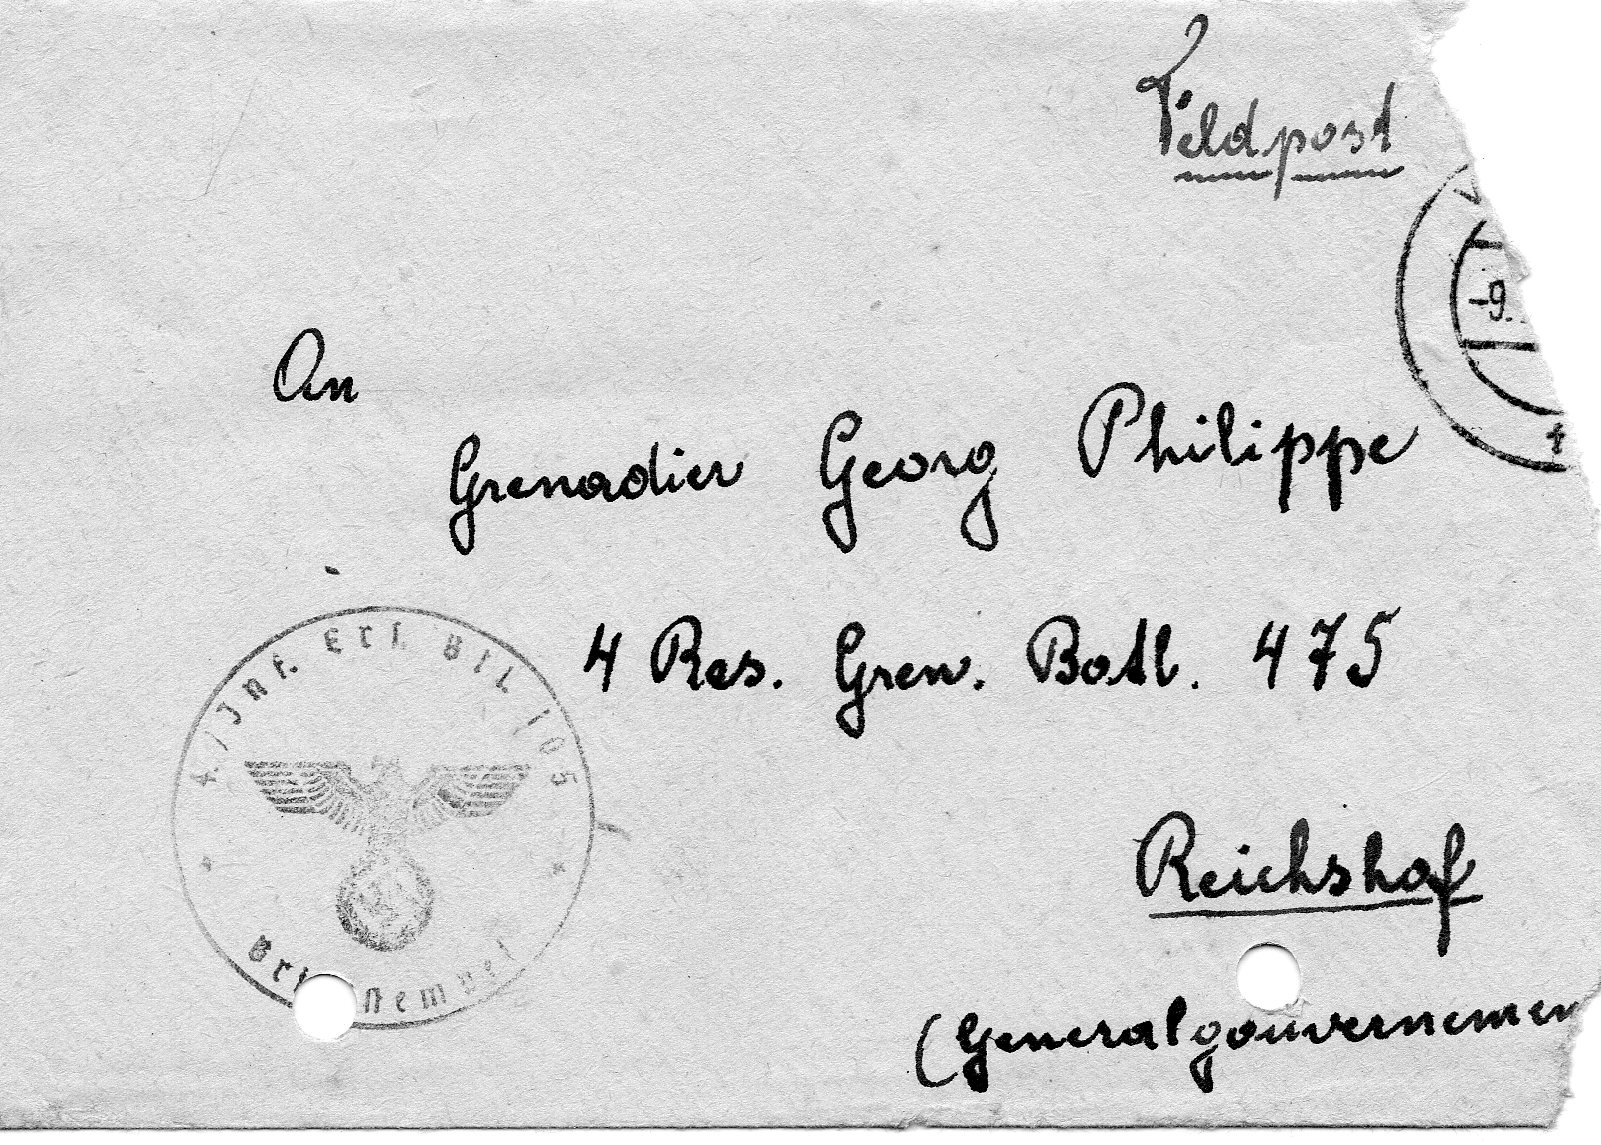 Feldpost
-9.
An
Grenadier Georg Philippe
4 Res. Gren. Batl. 475
Reichshof
(Generalgouvernemen
4./Inf. Ers. Btl. 105
Briefstempel